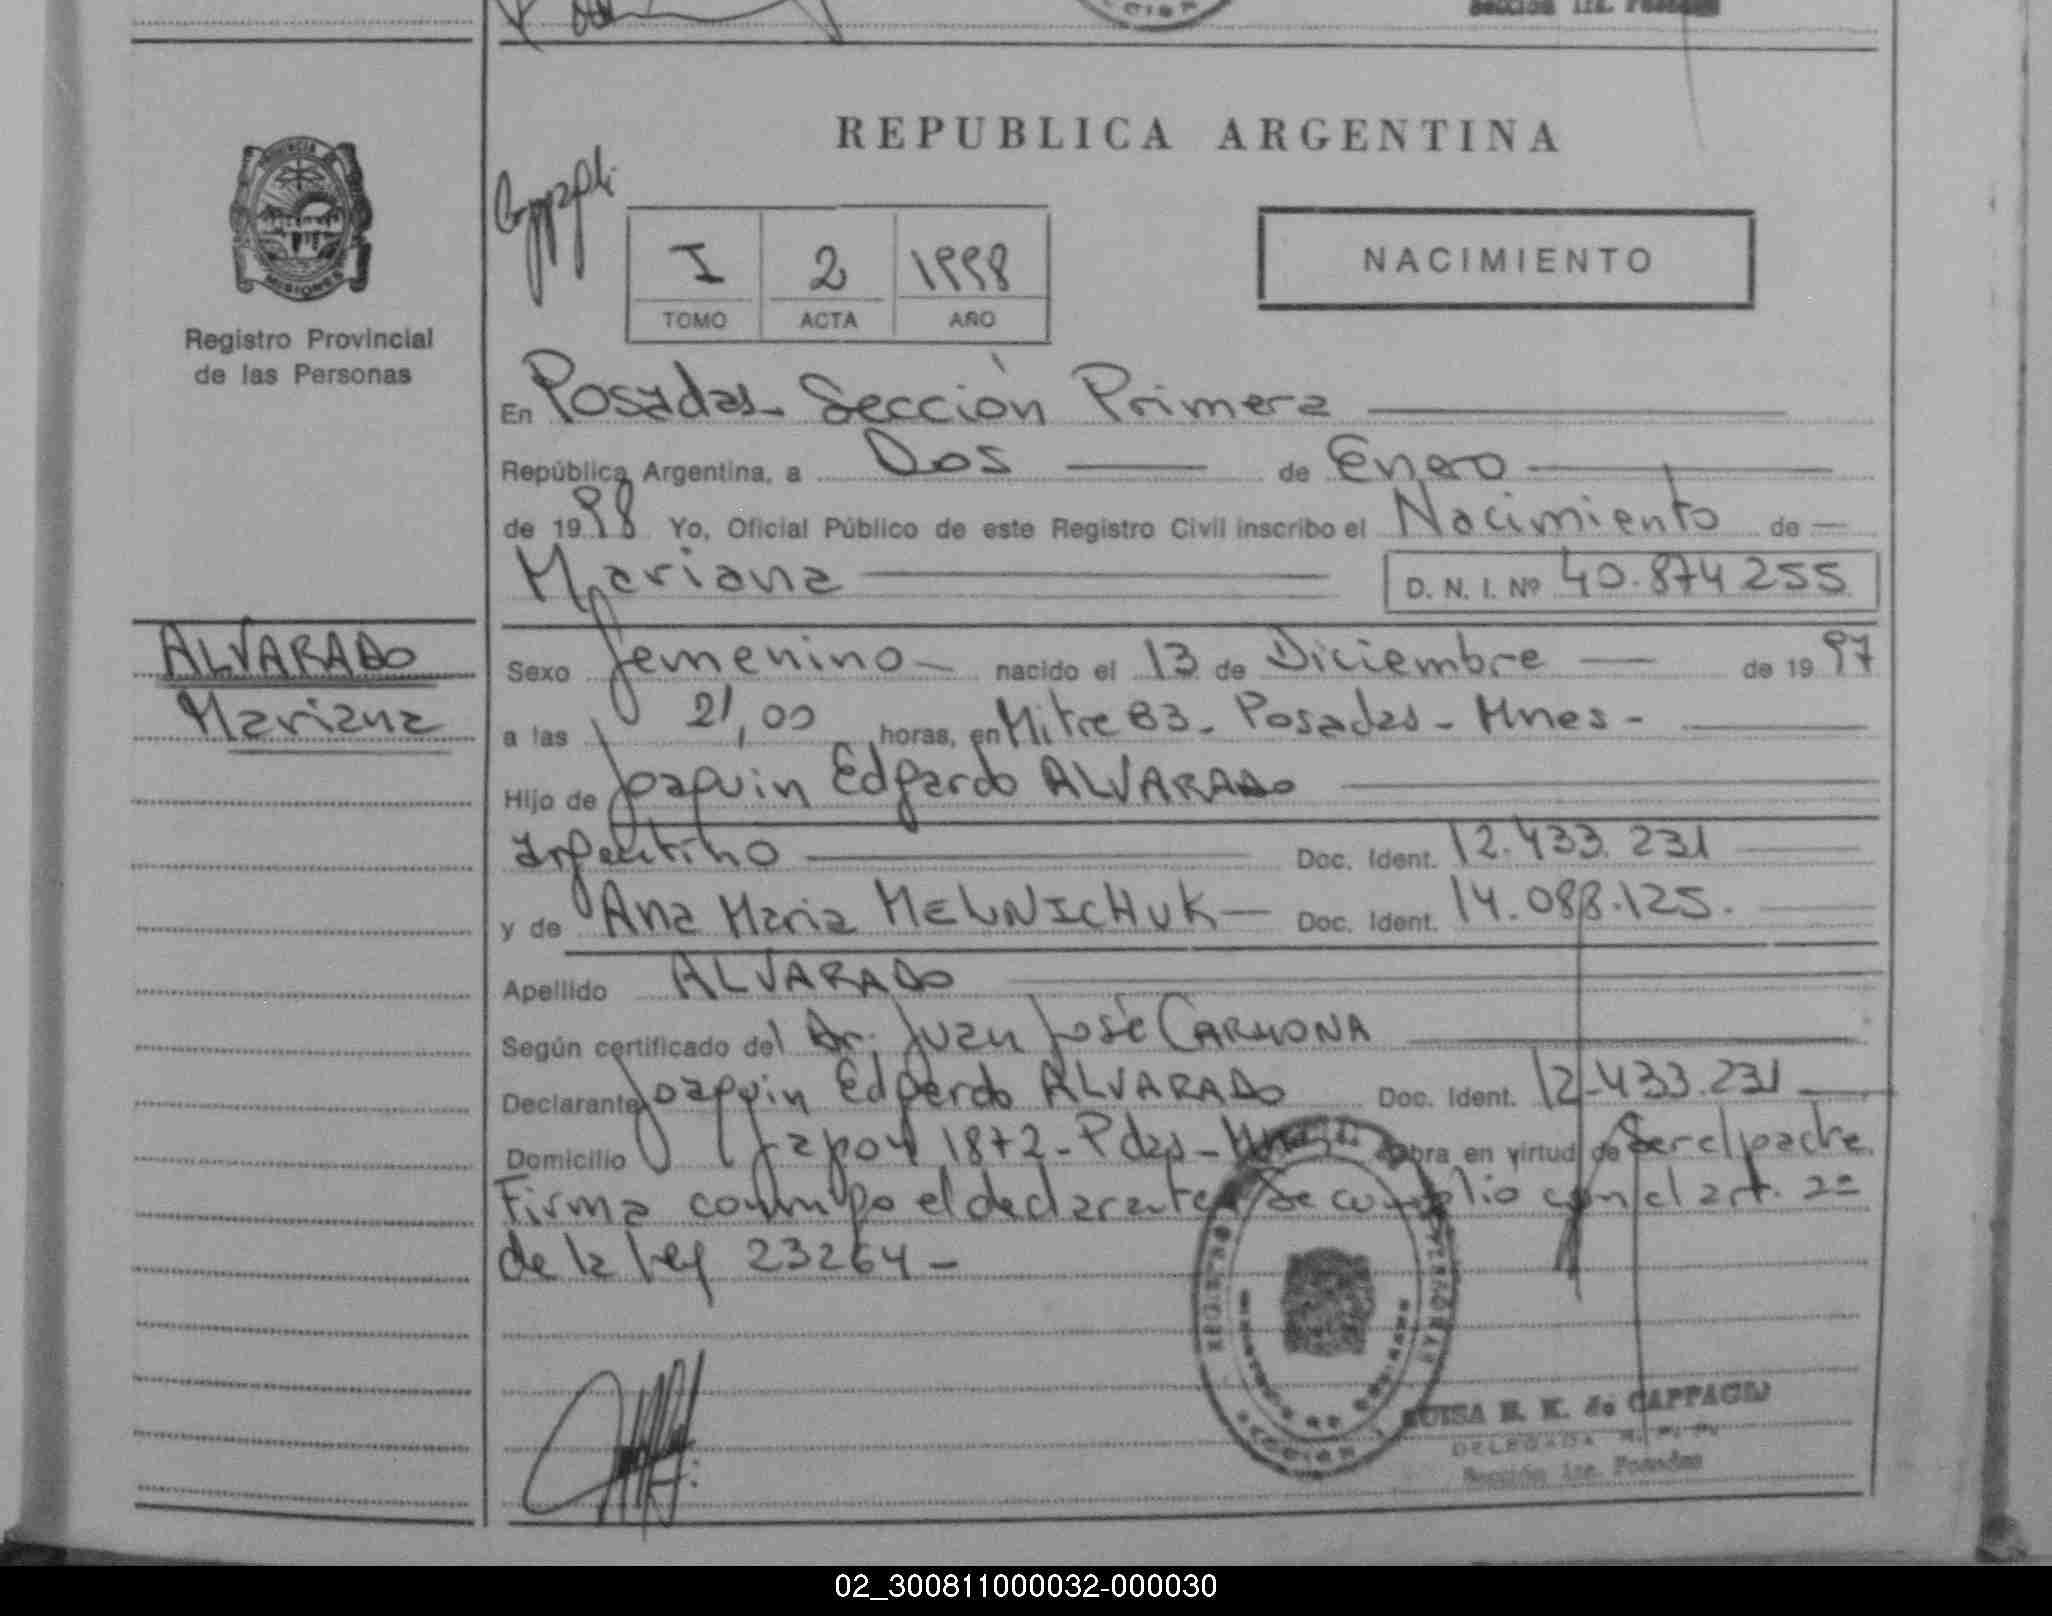 Sección 1ra. Posadas
REPUBLICA ARGENTINA
PROVINCIA DE
MISIONES
Registro Provincial
de las Personas
I 2 1998
TOMO ACTA AÑO
NACIMIENTO
En Posadas - Sección Primera
República Argentina, a Dos de Enero
de 1998 Yo, Oficial Público de este Registro Civil inscribo el Nacimiento de
Mariana D. N. I. Nº 40.874255
ALVARADO
Mariana
Sexo femenino nacido el 13 de Diciembre de 1997
a las 21,00 horas, en Mitre 83 - Posadas - Mnes -
Hijo de Joaquin Edgardo ALVARADO
argentino Doc. Ident. 12.433.231
y de Ana Maria MELNICHUK Doc. Ident. 14.088.125.
Apellido ALVARADO
Según certificado del Dr. Juan José CARMONA
Declarante Joaquin Edgardo ALVARADO Doc. Ident. 12.433.231
Domicilio Japon 1872 - Pdas - Mnes Obra en virtud de Ser el padre.
Firma conmigo el declarante Se cumplio con el art. 2º
de la ley 23264 -
LUISA R. K. de CAPPACIO
DELEGADA R. P. P.
Sección 1ra. Posadas
02_300811000032-000030